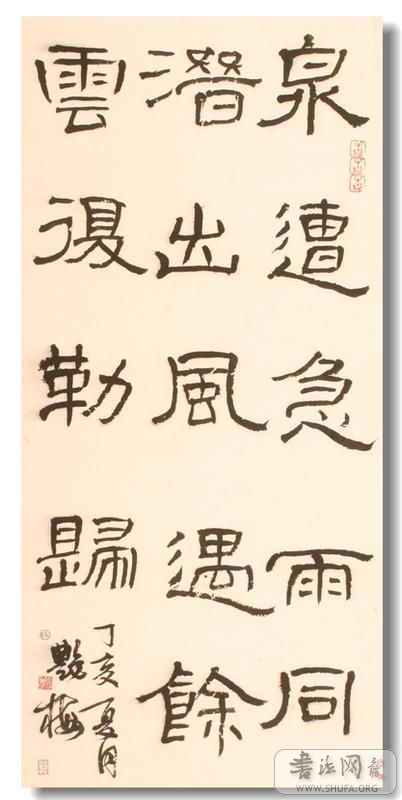 泉遭急雨同
潛出風遇餘
雲復勒歸
丁亥夏月
艷梅
書法网
WWW.SHUFA.ORG